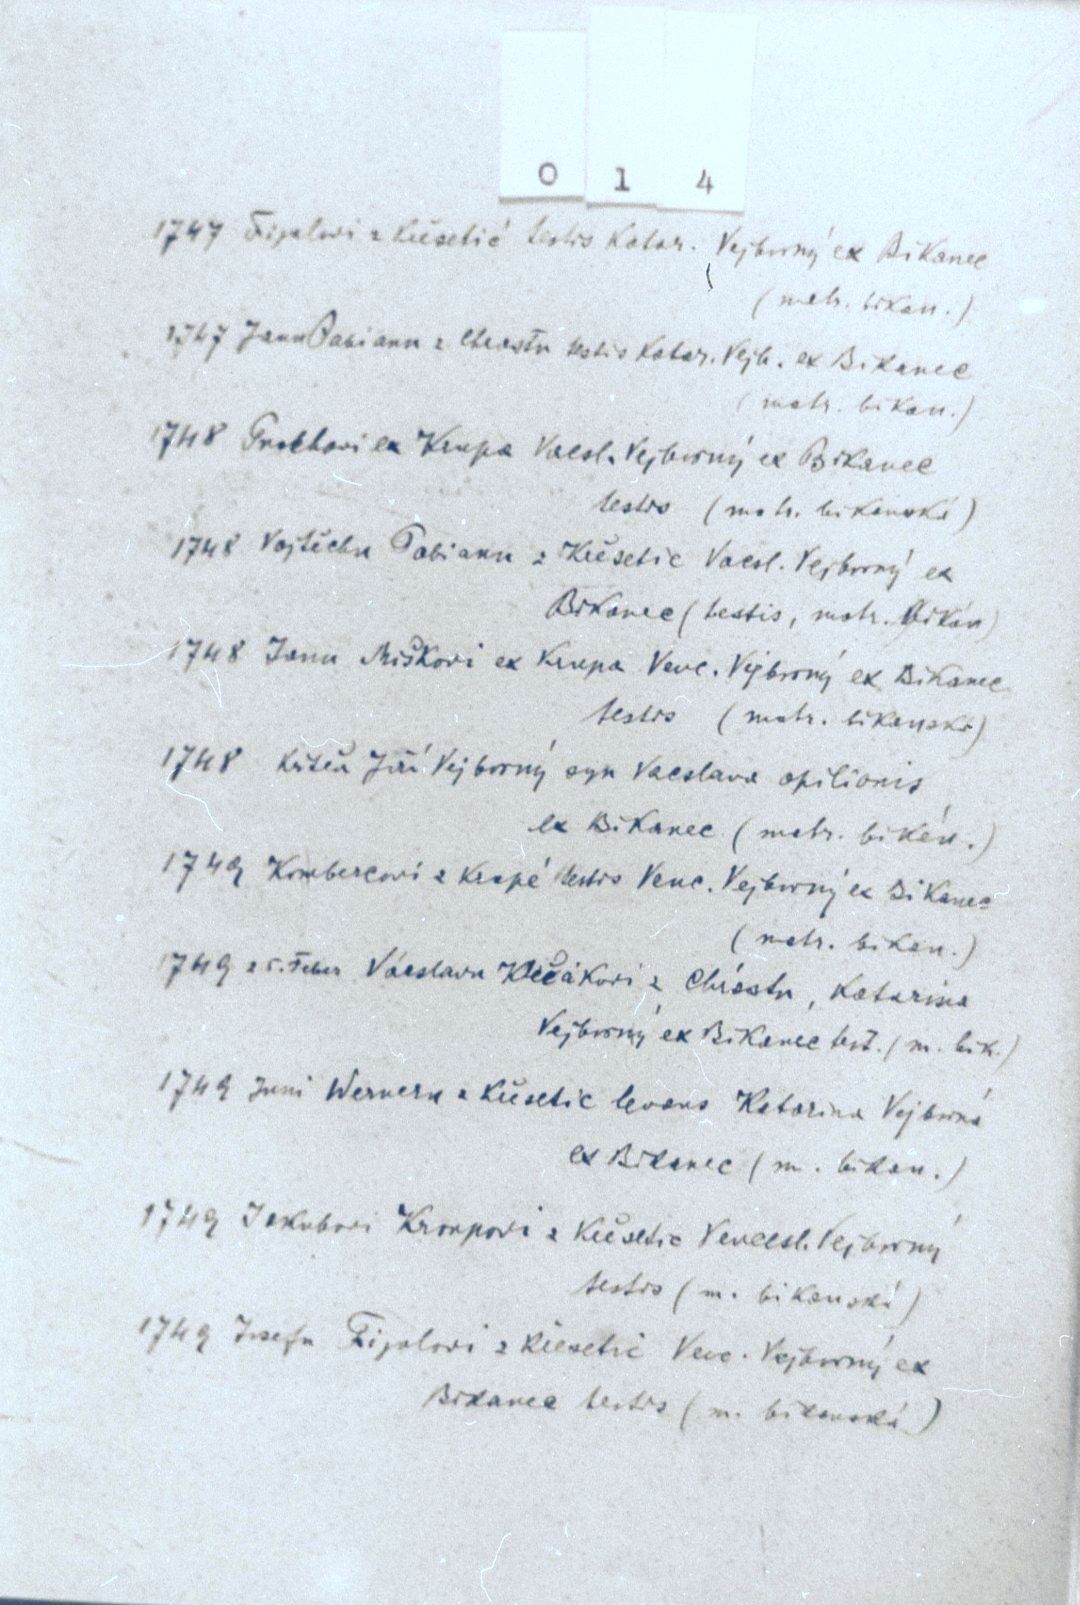 0 1 4
1747 Figalovi z Křesetic testis Katar. Vejborný ex Bikanec
(matr. bikan.)
1747 Janu Fabianu z Chrastu testis Katar. Vejb. ex Bikanec
(matr. bikan.)
1748 ex Krupa Vacsl. Vejborný ex Bikanec
testis (matr. bikanská)
1748 Vojtěchu Fabianu z Křesetic Vacsl. Vejborný ex
Bikanec (testis, matr. bikán)
1748 Janu Miškovi ex Krupa Venc. Vejborný ex Bikanec
testis (matr. bikanská)
1748 křtěn Jiří Vejborný syn Vacslava opilionis
ex Bikanec (matr. bikán.)
1749 z Krupé testis Venc. Vejborný ex Bikanec
(matr. bikan.)
1749 25. Feber Václavu z Chrástu, Katarina
Vejborný ex Bikanec test. (m. bik.)
1749 Juni Werneru z Křesetic levans Katarina Vejborná
ex Bikanec (m. bikan.)
1749 Jakubovi Kroupovi z Křesetic Vencesl. Vejborný
testis (m. bikanská)
1749 Josefu Figalovi z Křesetic Venc. Vejborný ex
Bikanec testis (m. bikanská)